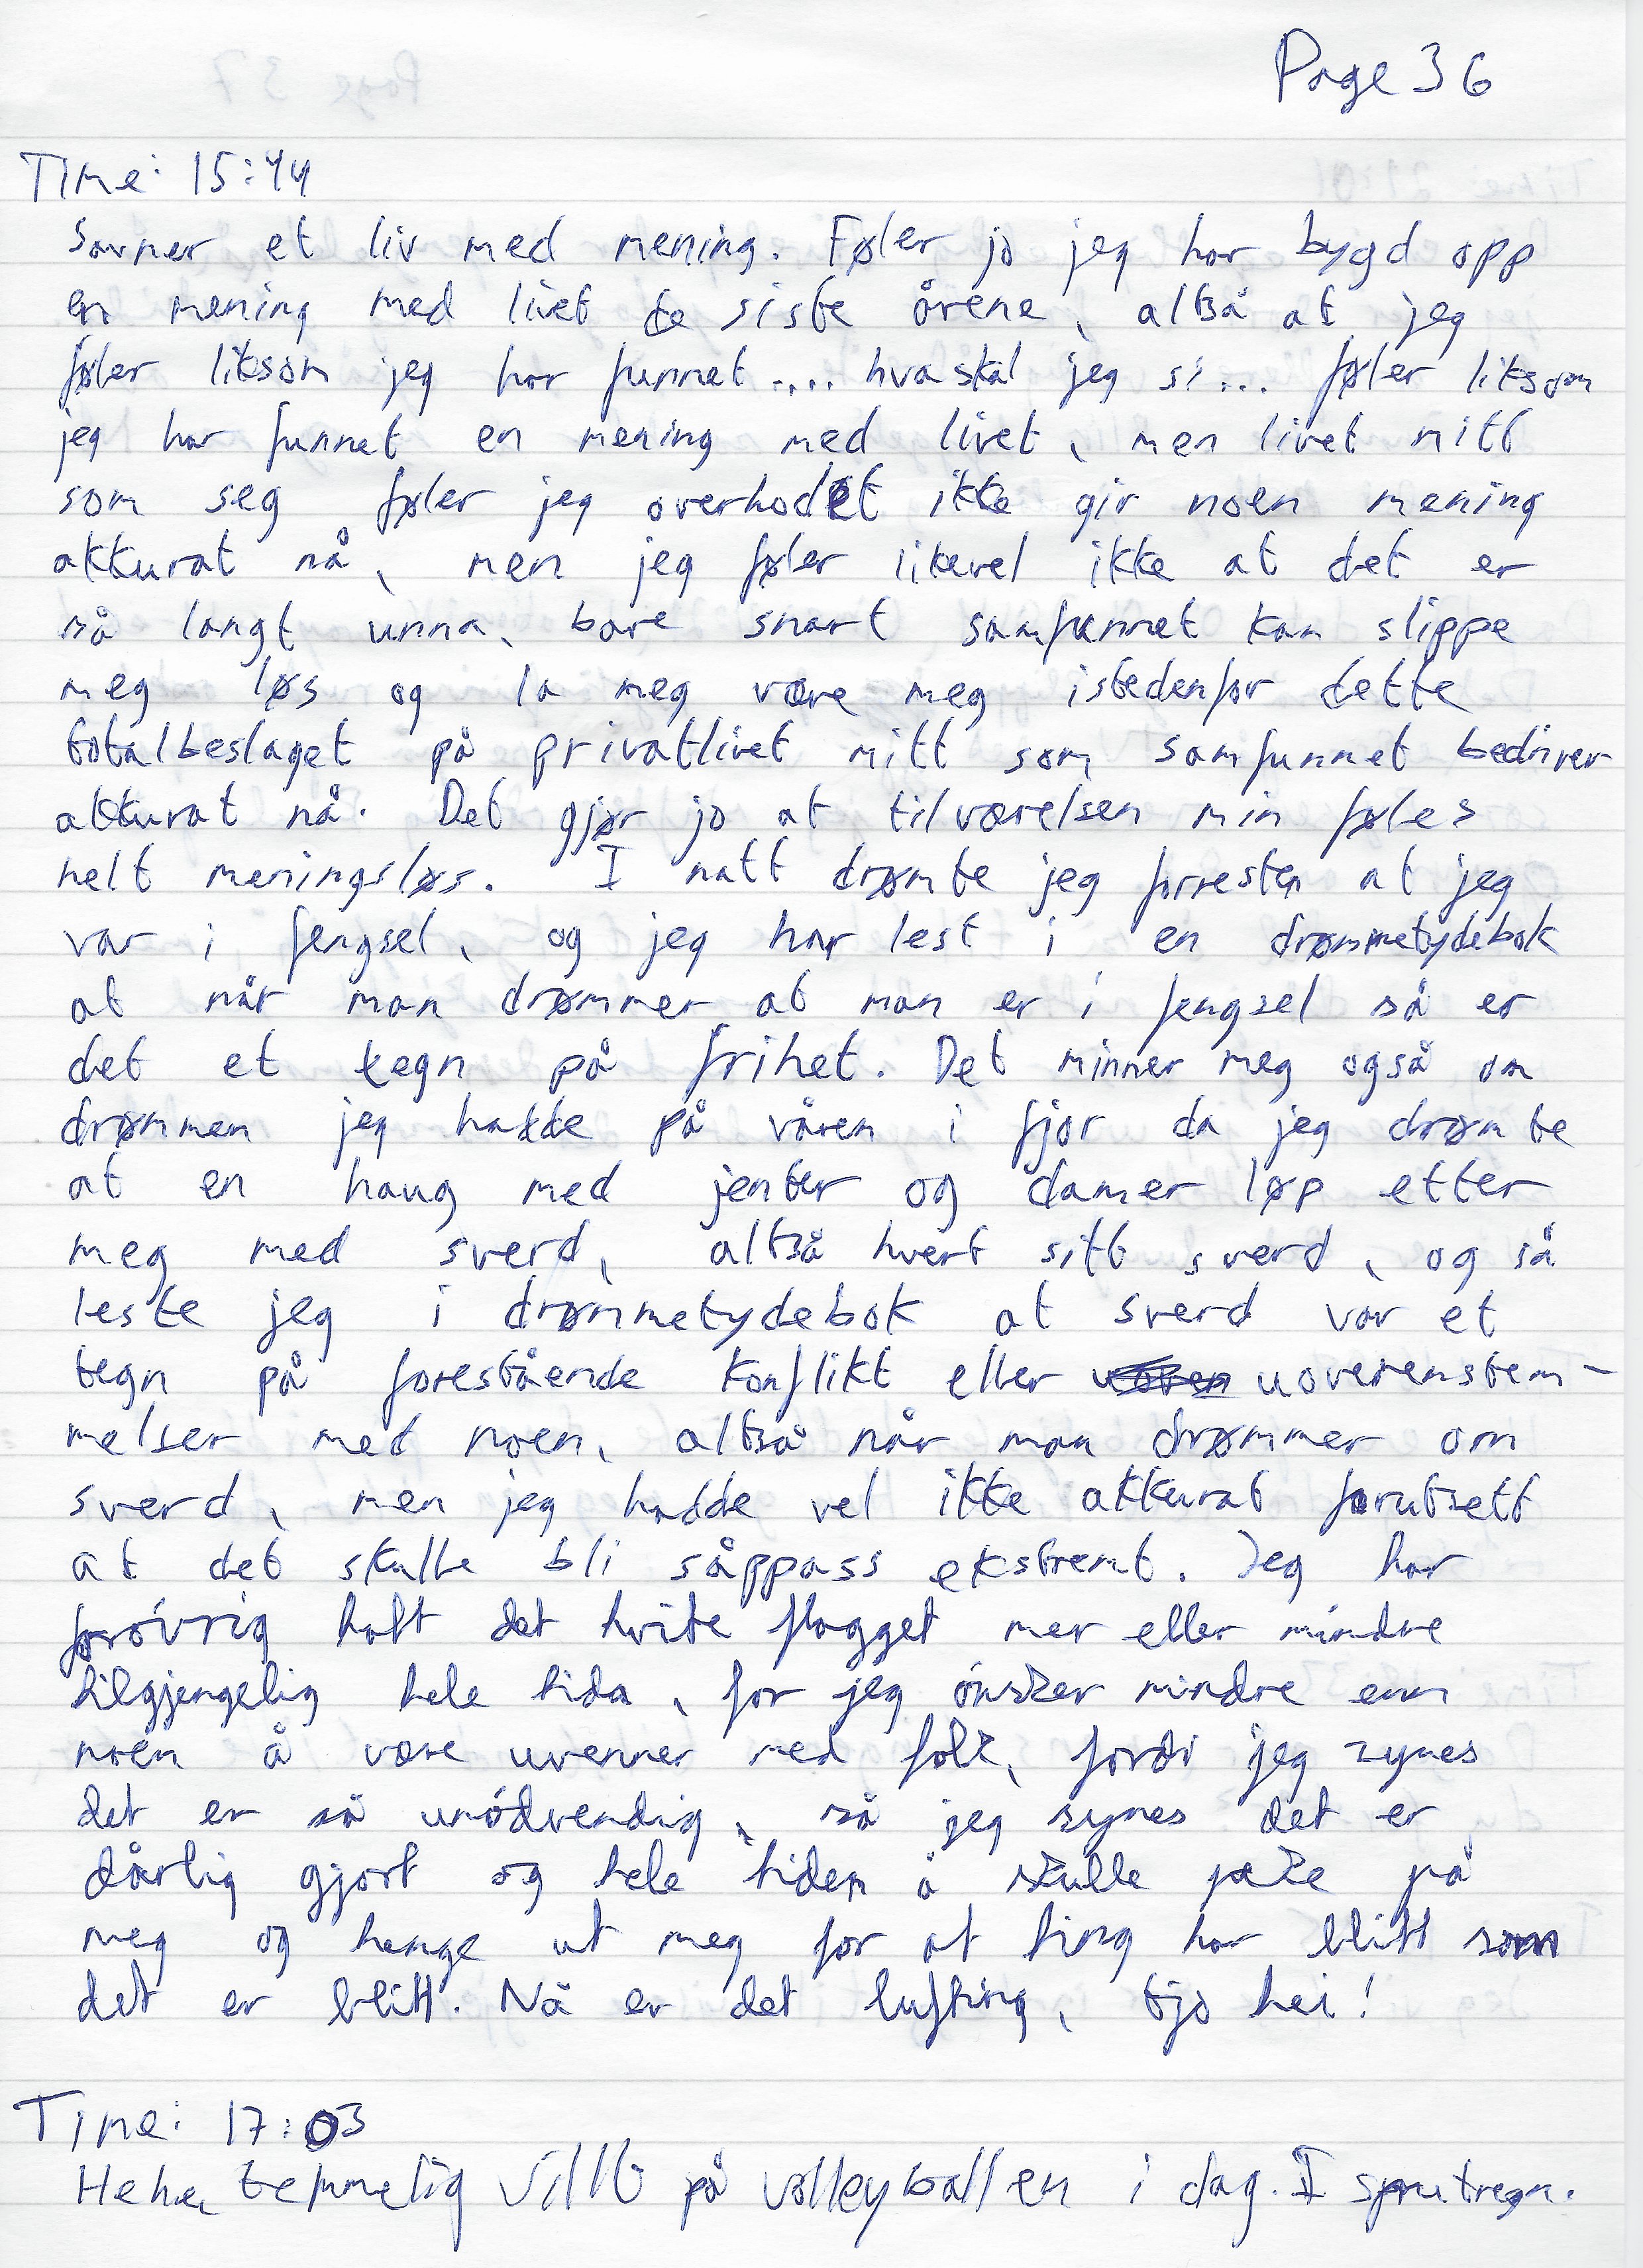 Page 36
Time: 15:44
Savner et liv med mening. Føler jo jeg har bygd opp
en mening med livet de siste årene, altså at jeg
føler liksom jeg har funnet .... hva skal jeg si... føler liksom
jeg har funnet en mening med livet, men livet mitt
som seg føler jeg overhodet ikke gir noen mening
akkurat nå, men jeg føler likevel ikke at det er
så langt unna, bare snart samfunnet kan slippe
meg løs og la meg være meg istedenfor dette
totalbeslaget på privatlivet mitt som samfunnet bedriver
akkurat nå. Det gjør jo at tilværelsen min føles
helt meningsløs. I natt drømte jeg forresten at jeg
var i fengsel, og jeg har lest i en drømmetydebok
at når man drømmer at man er i fengsel så er
det et tegn på frihet. Det minner meg også om
drømmen jeg hadde på våren i fjor da jeg drømte
at en haug med jenter og damer løp etter
meg med sverd, altså hvert sitt sverd, og så
leste jeg i drømmetydebok at sverd var et
tegn på forestående konflikt eller uoverenstem-
melser med noen, altså når man drømmer om
sverd, men jeg hadde vel ikke akkurat forutsett
at det skulle bli såppass ekstremt. Jeg har
forövrig hatt det hvite flagget mer eller mindre
tilgjengelig hele tida, for jeg önsker mindre enn
noen å være uvenner med folk, fordi jeg synes
det er så unödvendig, så jeg synes det er
dårlig gjort og hele tiden å skulle peke på
meg og henge ut meg for at ting har blitt som
det er blitt. Nå er det lufting, tjo hei!
Time: 17:03
Hehe, temmelig vilt på volleyballen i dag. I sprutregn.